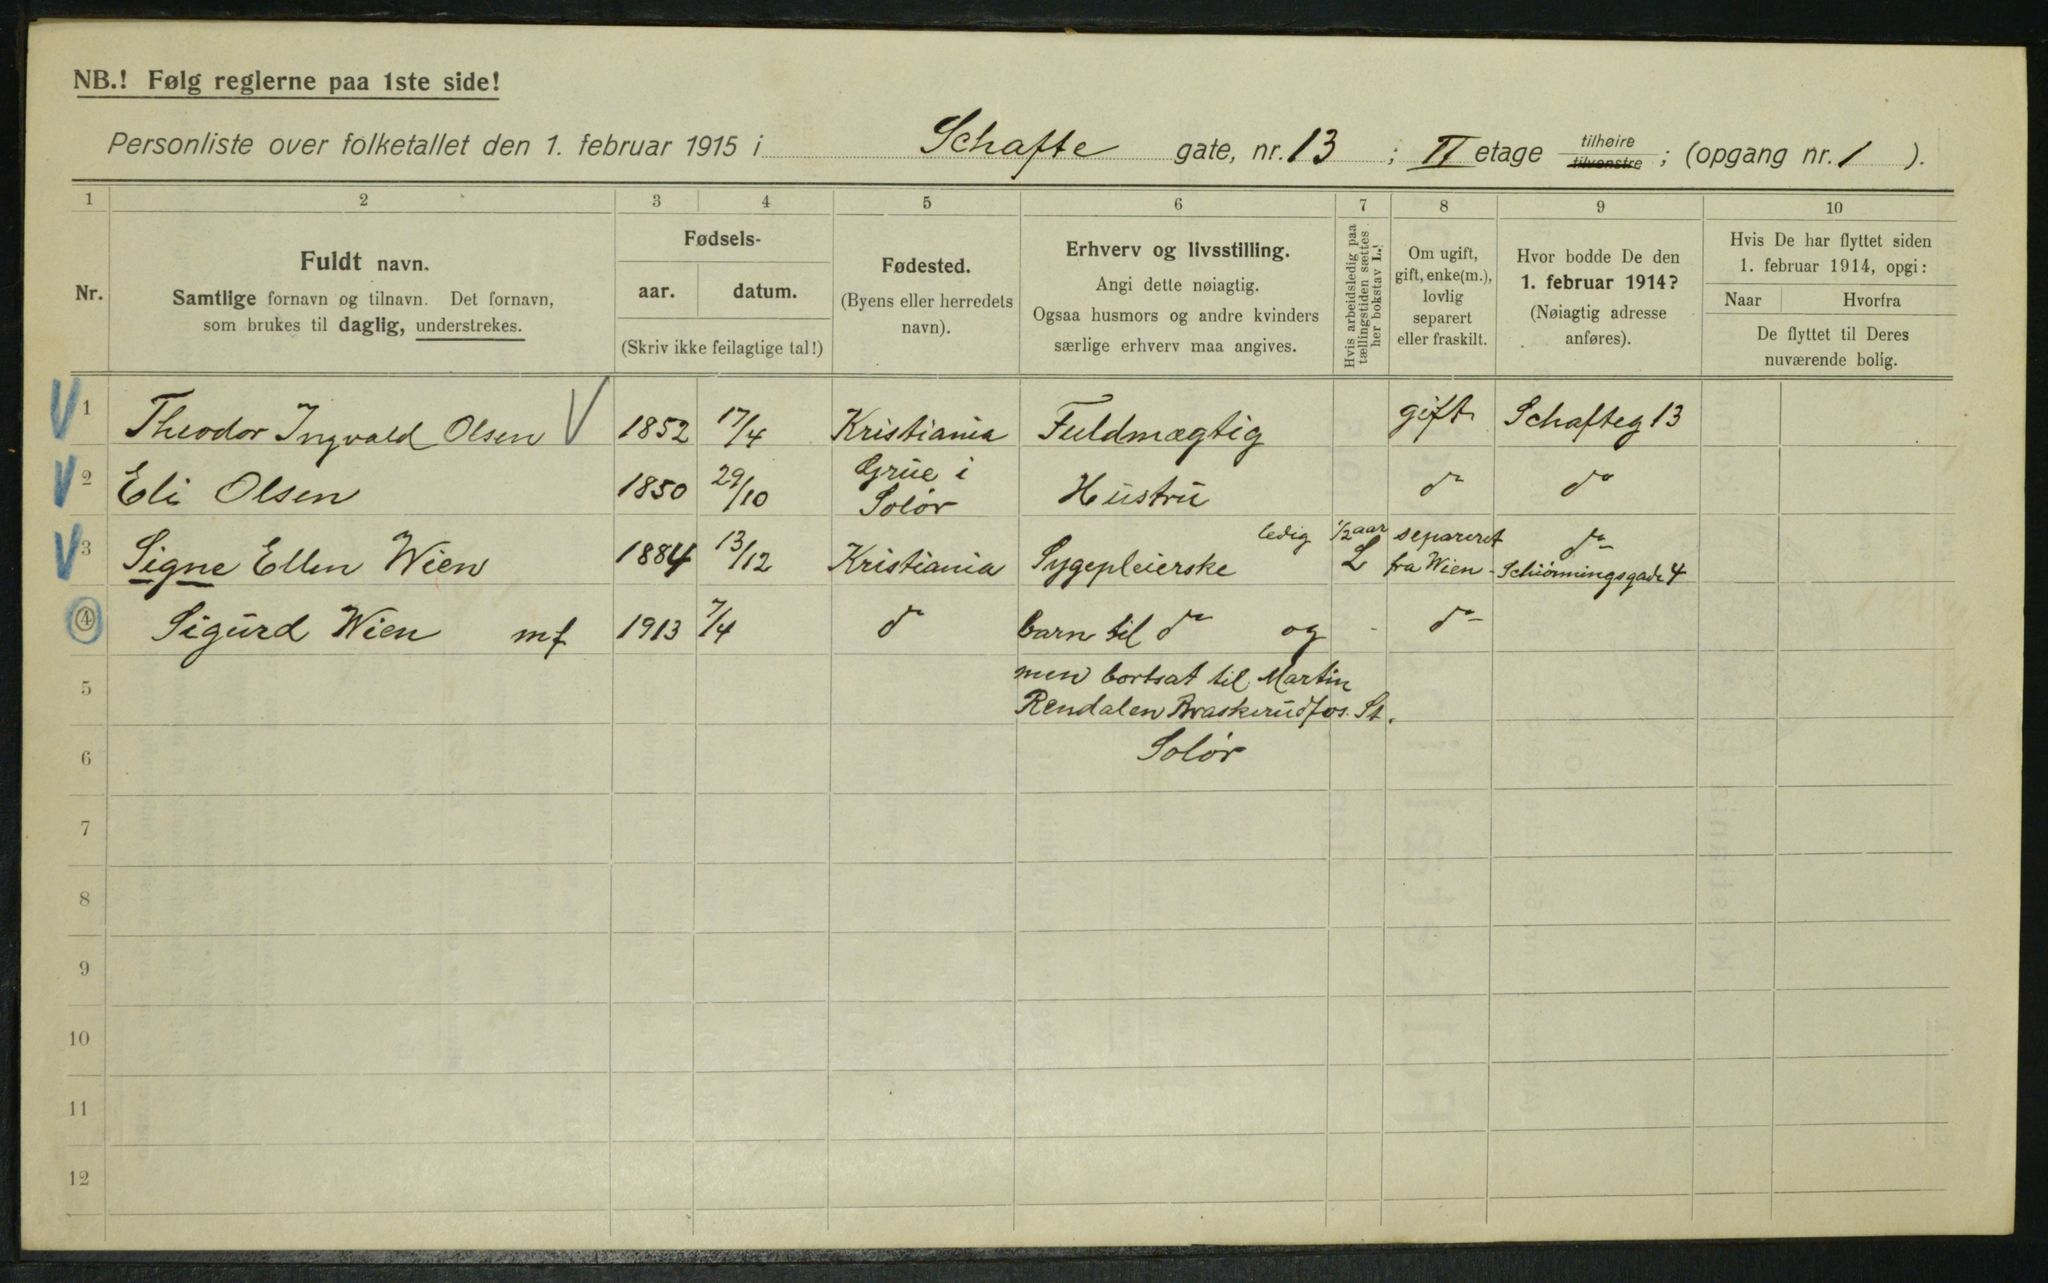 NB.! Følg reglerne paa 1ste side!
Personliste over folketallet den 1. februar 1915 i Schafte gate, nr. 13 ; II etage tilhøire tilvenstre ; (opgang nr. 1 ).
1 2 3 4 5 6 7 8 9 10
Nr.
Fuldt navn.
Samtlige fornavn og tilnavn. Det fornavn,
som brukes til daglig, understrekes.
Fødsels-
aar. datum.
(Skriv ikke feilagtige tal!)
Fødested.
(Byens eller herredets
navn).
Erhverv og livsstilling.
Angi dette nøiagtig.
Ogsaa husmors og andre kvinders
særlige erhverv maa angives.
Hvis arbeidsledig paa
tællingstiden sættes
her bokstav L.!
Om ugift,
gift, enke(m.),
lovlig
separert
eller fraskilt.
Hvor bodde De den
1. februar 1914?
(Nøiagtig adresse
anføres).
Hvis De har flyttet siden
1. februar 1914, opgi:
Naar Hvorfra
De flyttet til Deres
nuværende bolig.
1 Theodor Ingvald Olsen V 1852 17/4 Kristiania Fuldmægtig gift Schafteg 13
2 Eli Olsen 1850 29/10 Grue i Solør Hustru do do
3 Signe Ellen Wien 1884 13/12 Kristiania Sygepleierske ledig 1/2 aar L separeret fra Wien do Schiønningsgade 4
4 Sigurd Wien mf 1913 7/4 do barn til do og - do
5 men bortsat til Martin
Rendalen Braskerudfos. St.
6 Solør
7
8
9
10
11
12